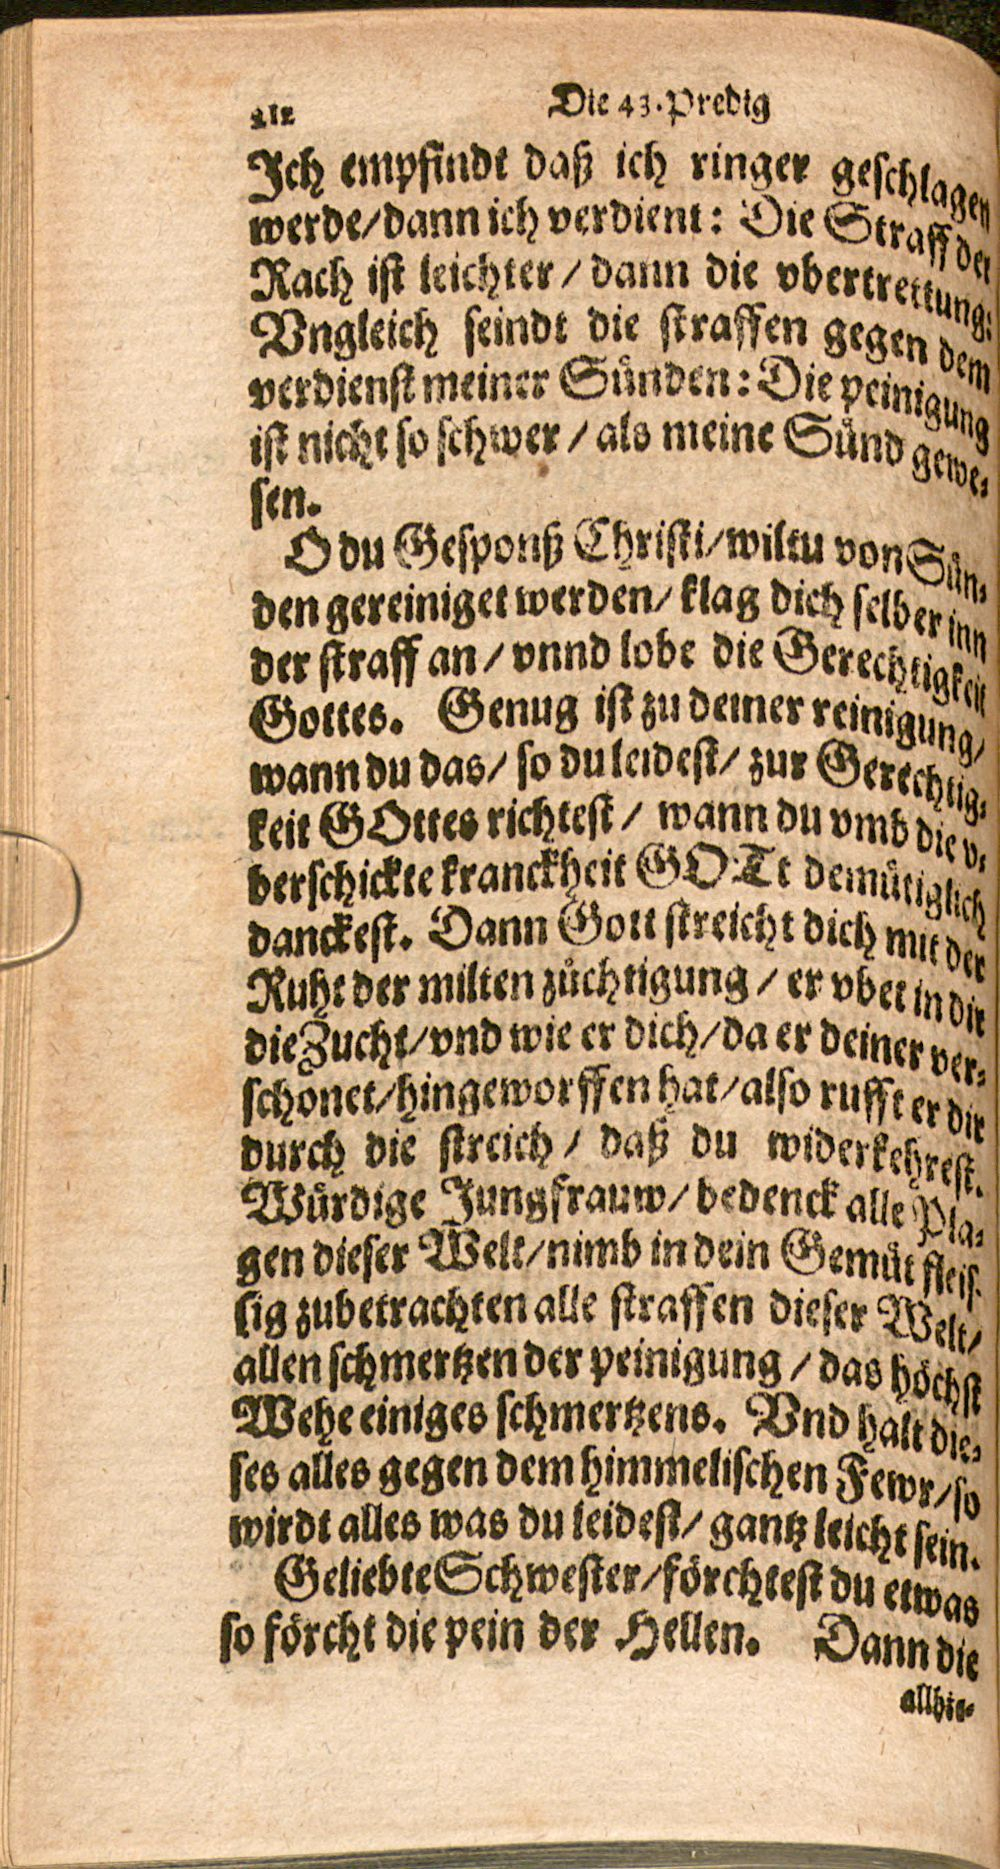 212 Die 43. Predig
Ich empfindt daß ich ringer geschlagen
werde/dann ich verdient: Die Straff der
Rach ist leichter/ dann die vbertrettung:
Vngleich seindt die straffen gegen dem
verdienst meiner Sünden: Die peinigung
ist nicht so schwer/ als meine Sünd gewe-
sen.
O du Gesponß Christi/wiltu von Sün-
den gereiniget werden/ klag dich selber inn
der straff an/ vnnd lobe die Gerechtigkeit
Gottes. Genug ist zu deiner reinigung/
wann du das/ so du leidest/ zur Gerechtig-
keit GOttes richtest/ wann du vmb die v-
berschickte kranckheit GOTt demütiglich
danckest. Dann Gott streicht dich mit der
Ruht der milten züchtigung/ er vbet in dir
die Zucht/vnd wie er dich/da er deiner ver-
schonet/hingeworffen hat/also rufft er dir
durch die streich/ daß du widerkehrest.
Würdige Jungfrauw/ bedenck alle Pla-
gen dieser Welt/nimb in dein Gemüt fleis-
sig zubetrachten alle straffen dieser Welt/
allen schmertzen der peinigung/ das höchst
Wehe einiges schmertzens. Vnd halt die-
ses alles gegen dem himmelischen Fewr/so
wirdt alles was du leidest/ gantz leicht sein.
Geliebte Schwester/förchtest du etwas
so förcht die pein der Hellen. Dann die
allhie-